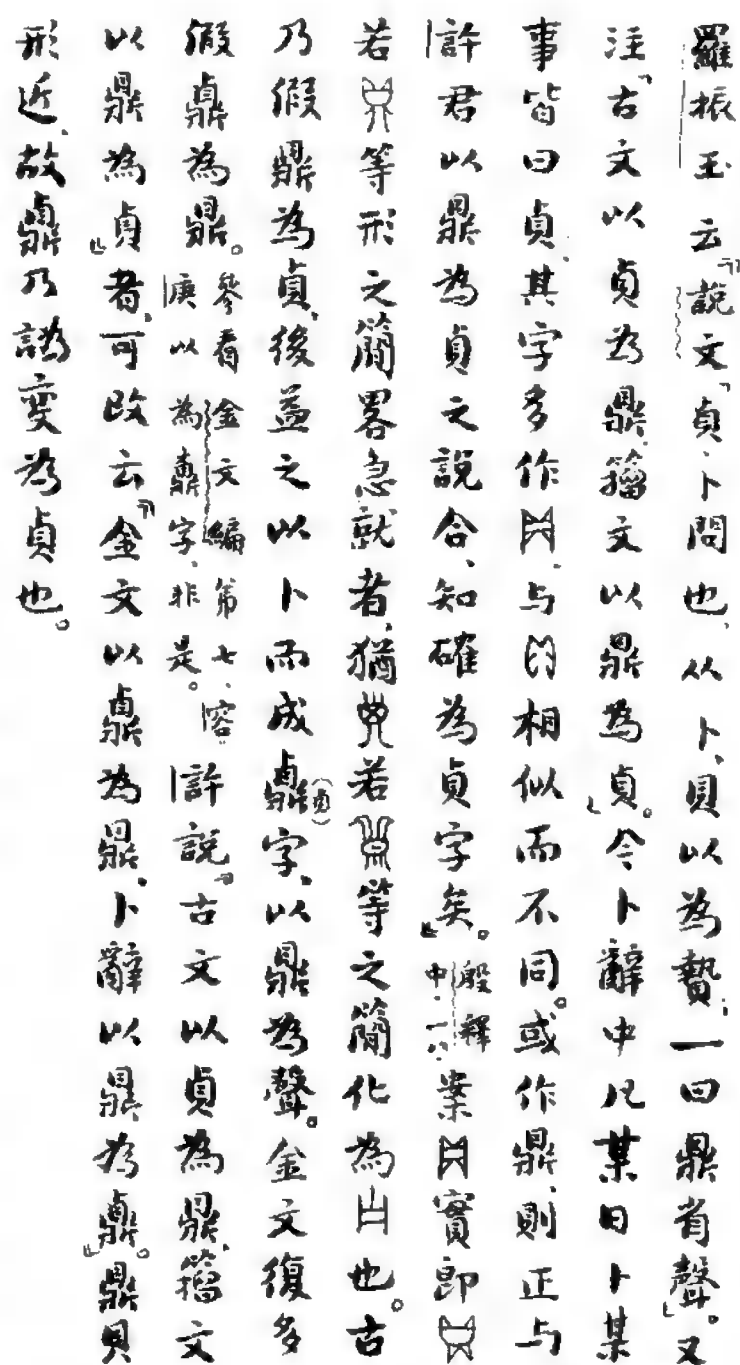 羅振玉云『說文「貞、卜問也、从卜、貝以為贄；一曰鼎省聲。」又
注「古文以貞為鼎、籒文以鼎為貞。」今卜辭中凡某日卜某
事皆曰貞、其字多作、与相似而不同。或作鼎、則正与
許君以鼎為貞之說合、知確為貞字矣。』殷釋中一六案實即
若等形之簡畧急就者、猶若等之簡化為也。古
乃假鼎為貞、後益之以卜而成鼑(貞)字、以鼎為聲。金文復多
假鼑為鼎。參看金文編第七、容庚以為字、非是。許說「古文以貞為鼎、籒文
以鼎為貞」者、可改云『金文以鼑為鼎、卜辭以鼎為鼑』。鼎貝
形近、故鼑乃譌變為貞也。